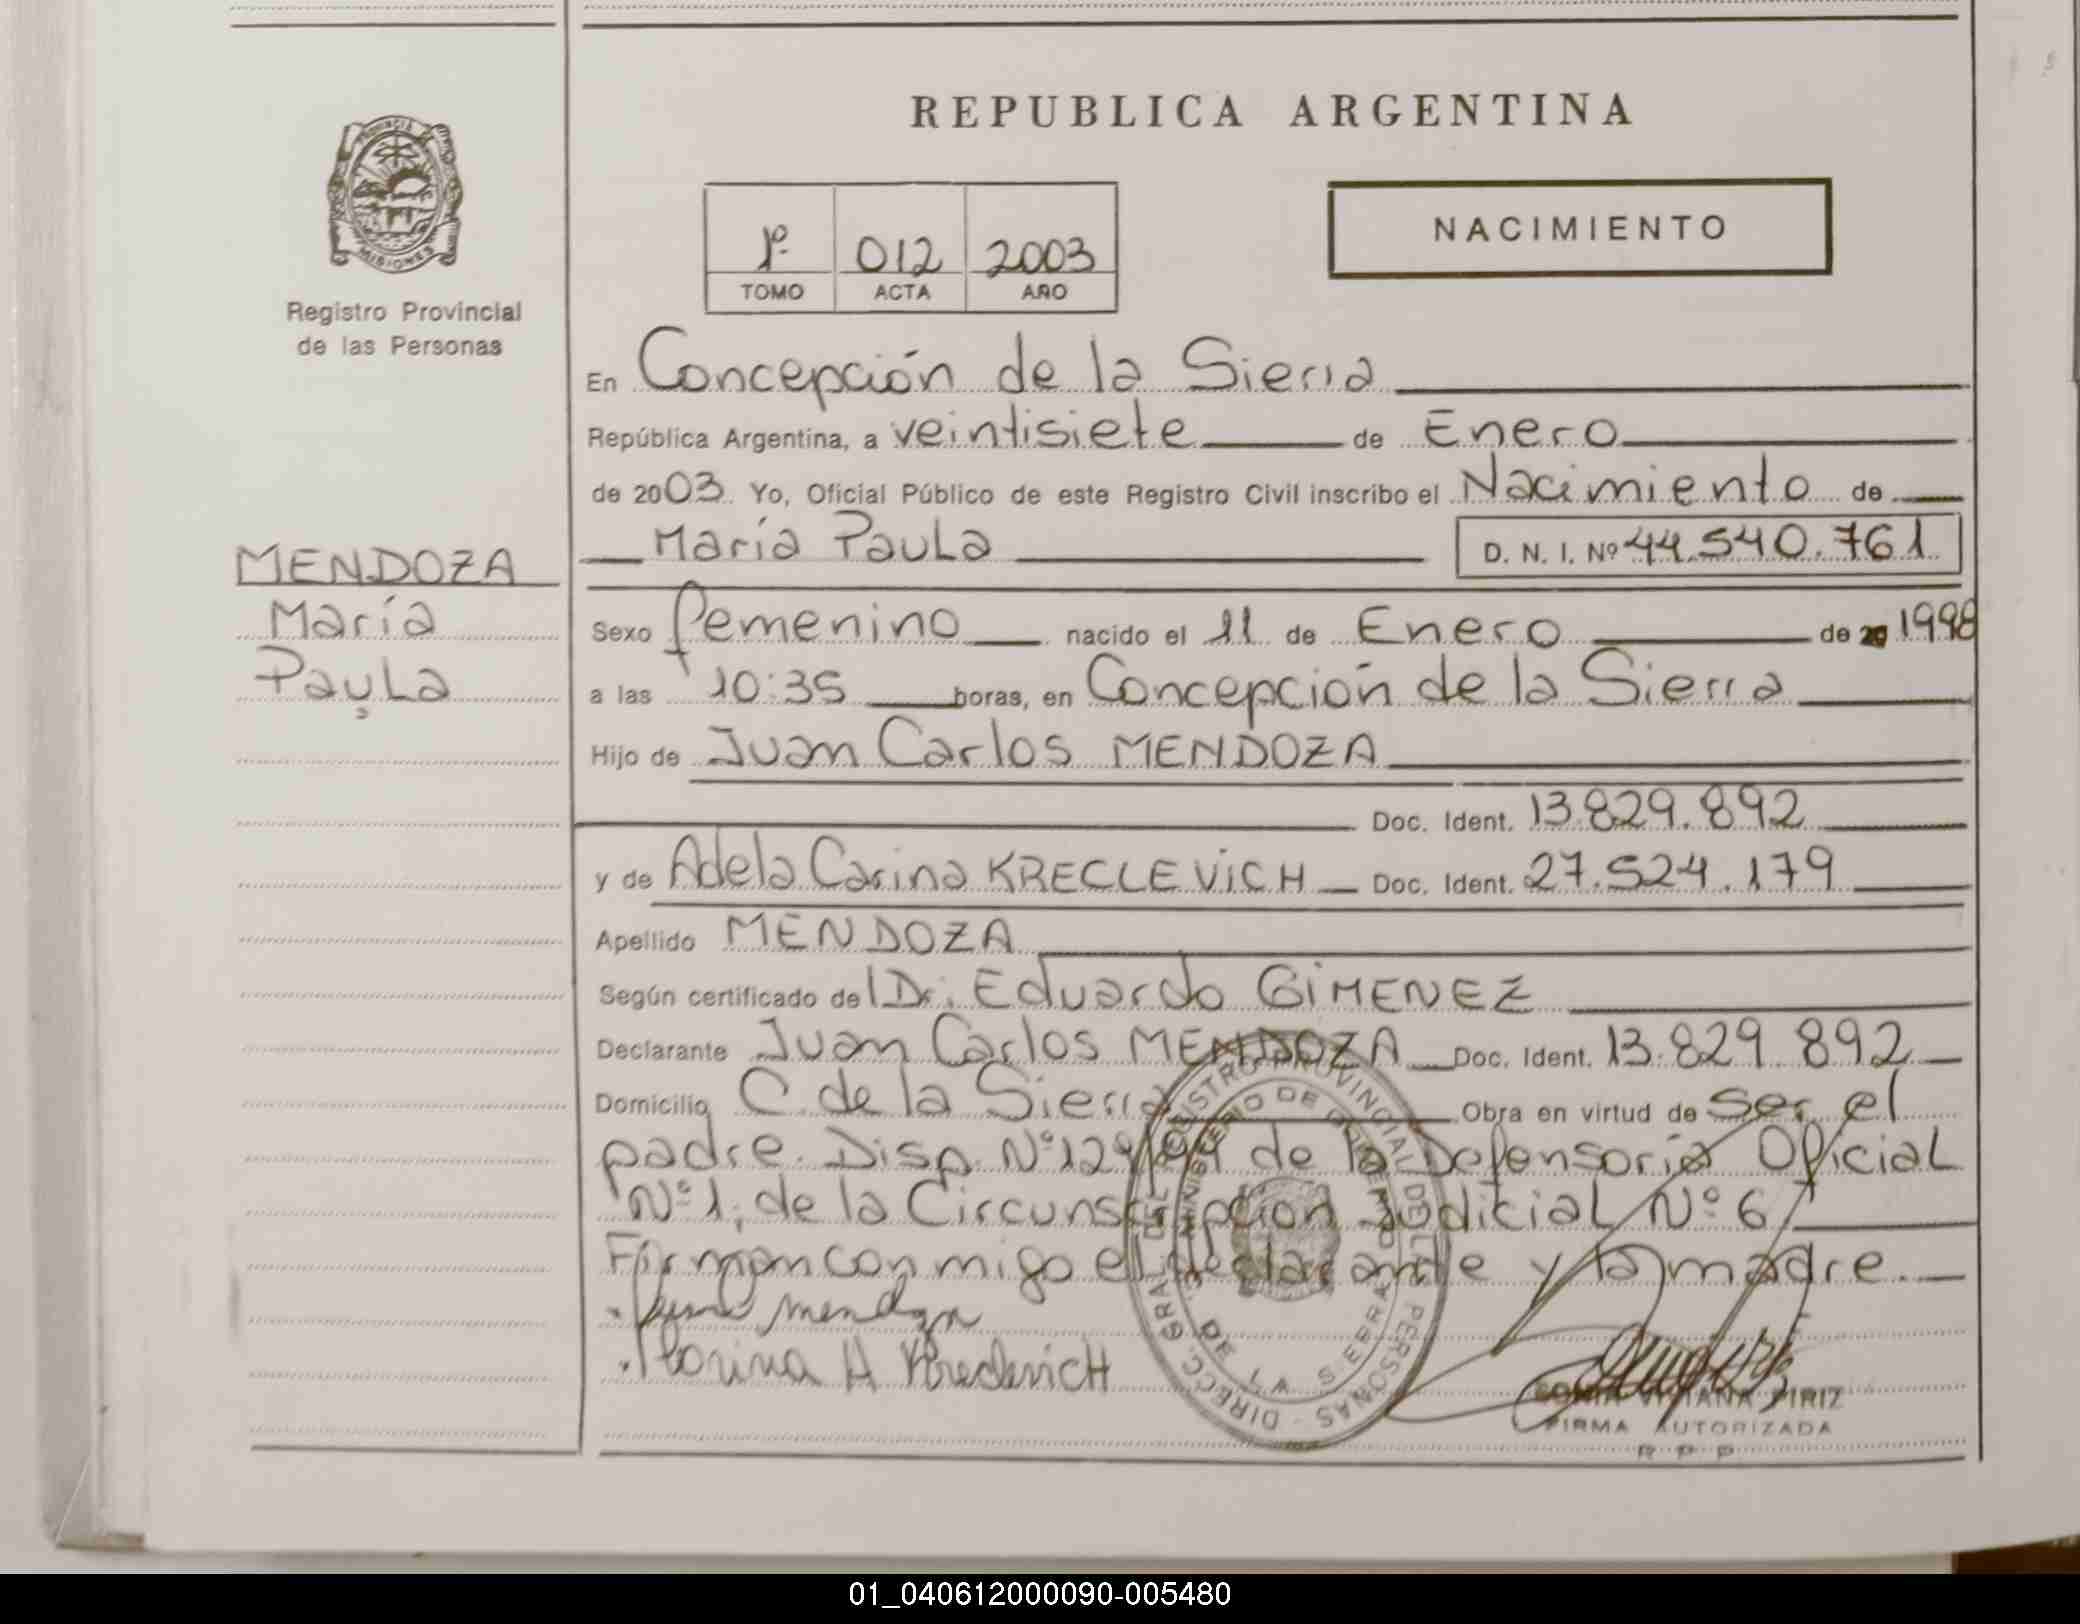 REPUBLICA ARGENTINA
PROVINCIA
MISIONES
Registro Provincial
de las Personas
1º 012 2003
TOMO ACTA AÑO
NACIMIENTO
En Concepción de la Sierra
República Argentina, a veintisiete de Enero
de 2003 Yo, Oficial Público de este Registro Civil inscribo el Nacimiento de
María Paula D. N. I. Nº 44.540.761
MENDOZA
María
Paula
Sexo femenino nacido el 11 de Enero de 20 1998
a las 10:35 horas, en Concepción de la Sierra
Hijo de Juan Carlos MENDOZA
Doc. Ident. 13.829.892
y de Adela Carina KRECLEVICH Doc. Ident. 27.524.179
Apellido MENDOZA
Según certificado del Dr. Eduardo GIMENEZ
Declarante Juan Carlos MENDOZA Doc. Ident. 13.829.892
Domicilio C. de la Sierra Obra en virtud de ser el
padre. Disp. Nº 129/99 de la Defensoría Oficial
Nº 1, de la Circunscripción Judicial Nº 6
Firman conmigo el declarante y la madre.
mendoza
DIRECC. GRAL. DEL REGISTRO PROVINCIAL DE LAS PERSONAS
MINISTERIO DE GOBIERNO
DE LA SIERRA
SONIA VIVIANA PIRIZ
FIRMA AUTORIZADA
R P P
01_040612000090-005480